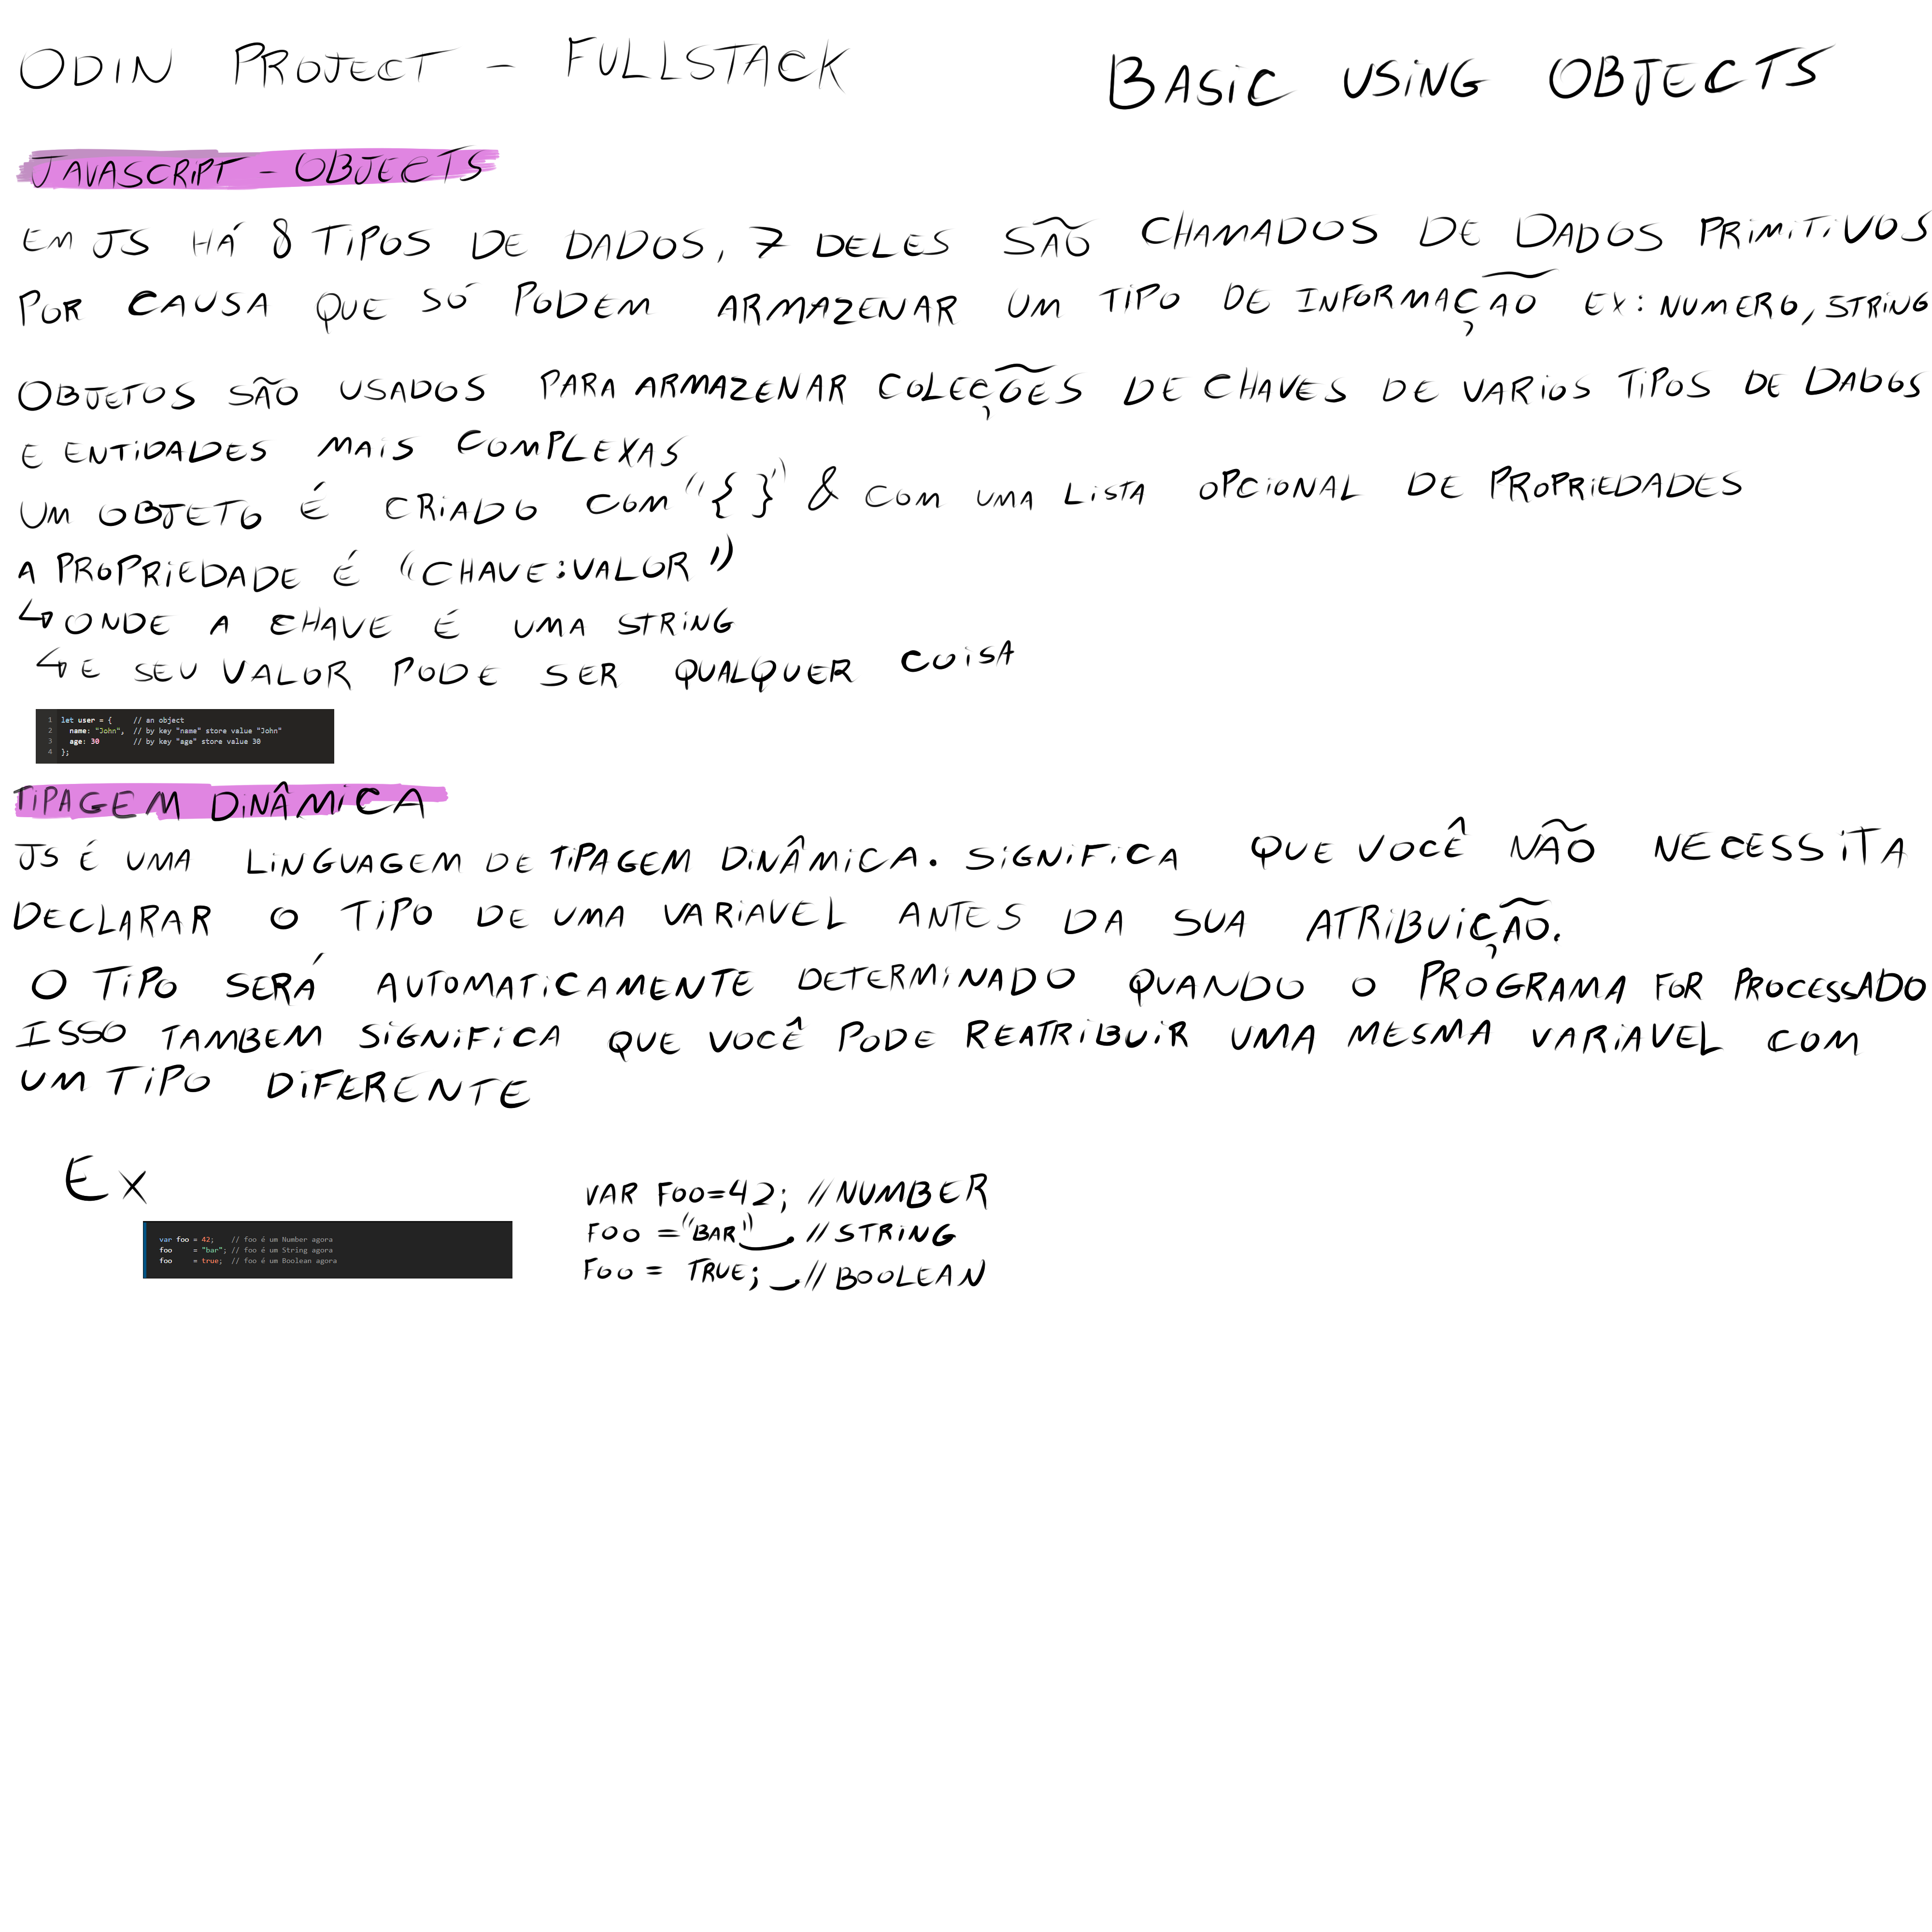 ODIN PROJECT - FULLSTACK
BASIC USING OBJECTS
JAVASCRIPT - OBJECTS
EM JS HÁ 8 TIPOS DE DADOS, 7 DELES SÃO CHAMADOS DE DADOS PRIMITIVOS
POR CAUSA QUE SÓ PODEM ARMAZENAR UM TIPO DE INFORMAÇÃO EX: NUMERO, STRING
OBJETOS SÃO USADOS PARA ARMAZENAR COLEÇÕES DE CHAVES DE VARIOS TIPOS DE DADOS
E ENTIDADES MAIS COMPLEXAS
UM OBJETO É CRIADO COM "{ }" & COM UMA LISTA OPCIONAL DE PROPRIEDADES
A PROPRIEDADE É "CHAVE:VALOR"
↳ ONDE A CHAVE É UMA STRING
↳ E SEU VALOR PODE SER QUALQUER COISA
1 let user = { // an object
2 name: "John", // by key "name" store value "John"
3 age: 30 // by key "age" store value 30
4 };
TIPAGEM DINÂMICA
JS É UMA LINGUAGEM DE TIPAGEM DINÂMICA. SIGNIFICA QUE VOCÊ NÃO NECESSITA
DECLARAR O TIPO DE UMA VARIAVEL ANTES DA SUA ATRIBUIÇÃO.
O TIPO SERÁ AUTOMATICAMENTE DETERMINADO QUANDO O PROGRAMA FOR PROCESSADO
ISSO TAMBEM SIGNIFICA QUE VOCÊ PODE REATRIBUIR UMA MESMA VARIAVEL COM
UM TIPO DIFERENTE
EX
var foo = 42; // foo é um Number agora
foo = "bar"; // foo é um String agora
foo = true; // foo é um Boolean agora
VAR FOO=42; //NUMBER
FOO ="BAR" //STRING
FOO = TRUE; //BOOLEAN